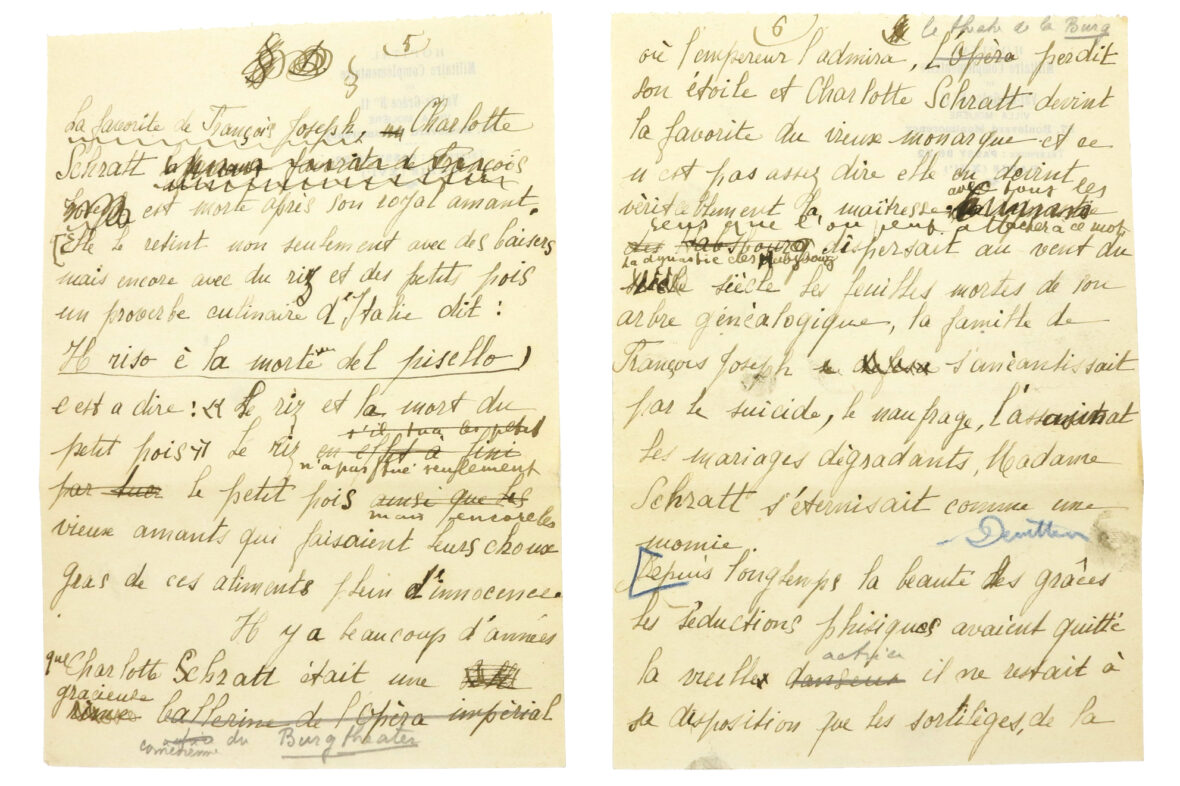 5
La favorite de François Joseph, Charlotte
Schratt la favorite de François
Joseph est morte après son royal amant.
Elle le retint non seulement avec des baisers
mais encore avec du riz et des petits pois
un proverbe culinaire d'Italie dit :
Il riso è la morte del pisello
c'est a dire : Le riz et la mort du
s'il tua les petits
petit pois Le riz en effet à fini
n'a pas tué seulement
par tuer le petit pois ainsi que les
mais encore les
vieux amants qui faisaient leurs choux
gras de ces aliments plein d'innocence.
Il y a beaucoup d'années
que Charlotte Schratt était une
gracieuse
ballerine de l'Opéra impérial
comédienne du Burgtheater
6
le theatre de la Burg
où l'empereur l'admira, L'Opéra perdit
son étoile et Charlotte Schratt devint
la favorite du vieux monarque et ce
n'est pas assez dire elle en devint
avec tous les
véritablement la maîtresse
sens que l'on peut attacher a ce mot
des Habsbourg dispersait au vent du
La dynastie des Habsbourg
siècle les feuilles mortes de son
arbre généalogique, la famille de
François Joseph s'anéantissait
par le suicide, le naufrage, l'assassinat
les mariages dégradants, Madame
Schratt s'éternisait comme une
momie.
Depuis longtemps la beauté les grâces
les séductions phisiques avaient quitté
actrice
la vieille danseuse il ne restait à
sa disposition que les sortilèges, de la